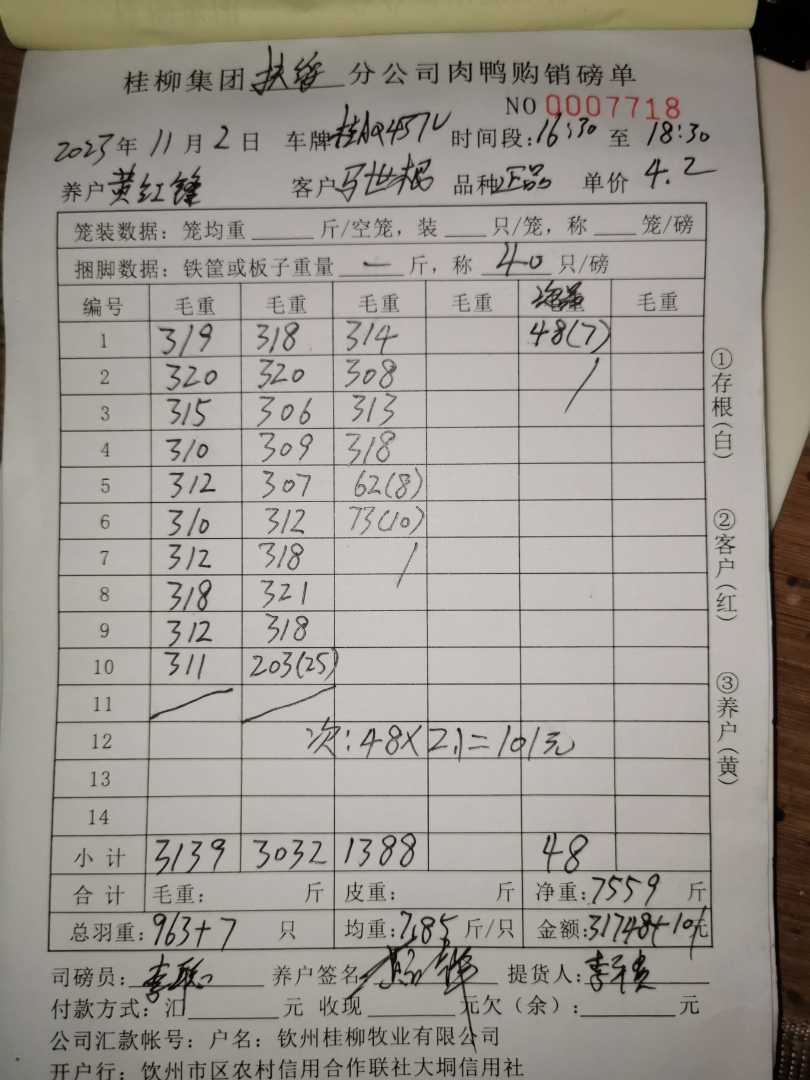 桂柳集团扶绥分公司肉鸭购销磅单
NO 0007718
2023年 11月 2日 车牌 时间段:16:30 至 18:30
养户 黄红锋 客户 马世 品种 正品 单价 4.2
笼装数据: 笼均重 斤/空笼, 装 只/笼, 称 笼/磅
捆脚数据: 铁筐或板子重量 一 斤, 称 40 只/磅
编号 毛重 毛重 毛重 毛重 毛重
1 319 318 314 48(7)
2 320 320 308
3 315 306 313
4 310 309 318
5 312 307 62(8)
6 310 312 73(10)
7 312 318
8 318 321
9 312 318
10 311 203(25)
11
12 次:48×2.1=101元
13
14
小计 3139 3032 1388 48
合计 毛重: 斤 皮重: 斤 净重:7559 斤
总羽重:963+7 只 均重:7.85 斤/只 金额:31748+101元
司磅员: 养户签名 提货人:
付款方式:汇 元 收现 元欠(余): 元
公司汇款帐号: 户名: 钦州桂柳牧业有限公司
开户行: 钦州市区农村信用合作联社大垌信用社
①存根(白)
②客户(红)
③养户(黄)